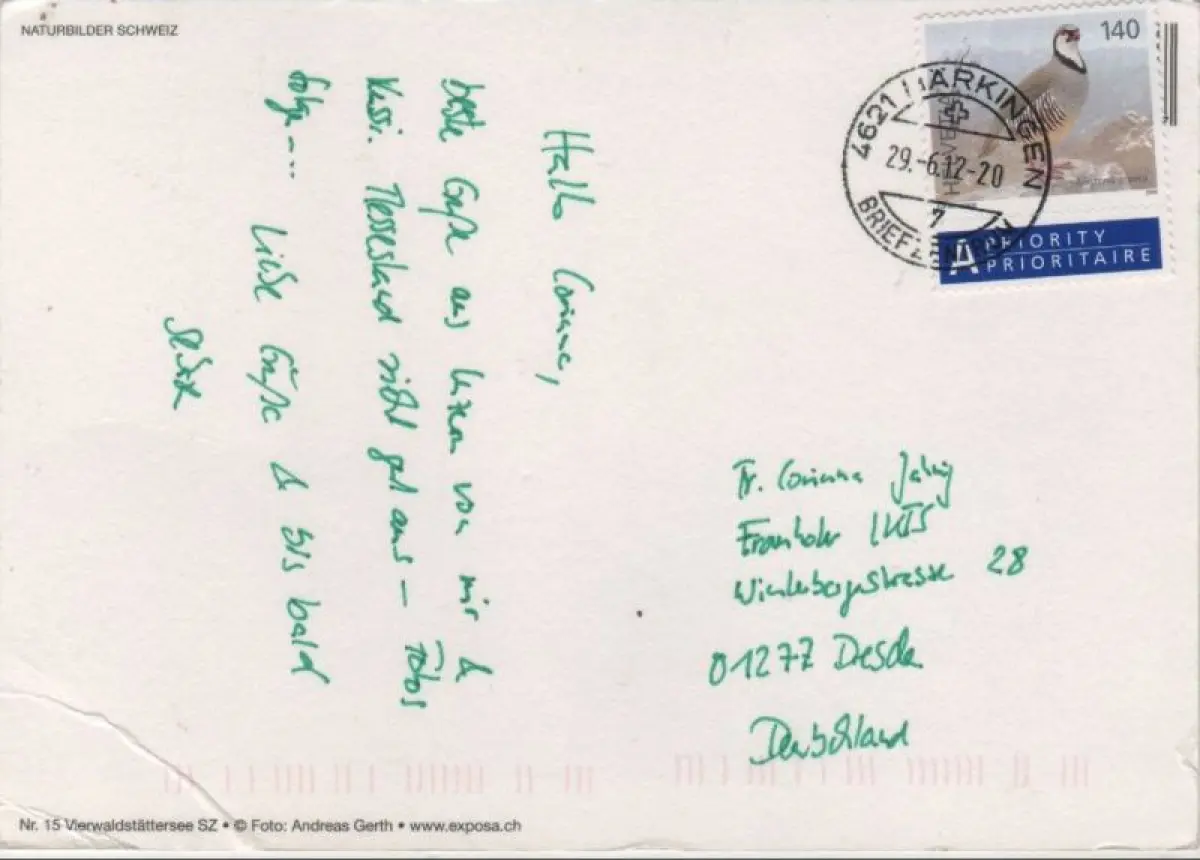 NATURBILDER SCHWEIZ
140
HELVETIA
4621 HÄRKINGEN
29.-6.12-20
7
BRIEFZENTRUM
A PRIORITY
PRIORITAIRE
Hallo Corinna,
beste Grüße aus Luzern von mir &
Kussi. Messestand sieht gut aus – Fotos
folgen...
Liebe Grüße & bis bald
Fr. Corinna
Fraunhofer IKTS
Winterbergstrasse 28
01277 Dresden
Deutschland
Nr. 15 Vierwaldstättersee SZ • © Foto: Andreas Gerth • www.exposa.ch